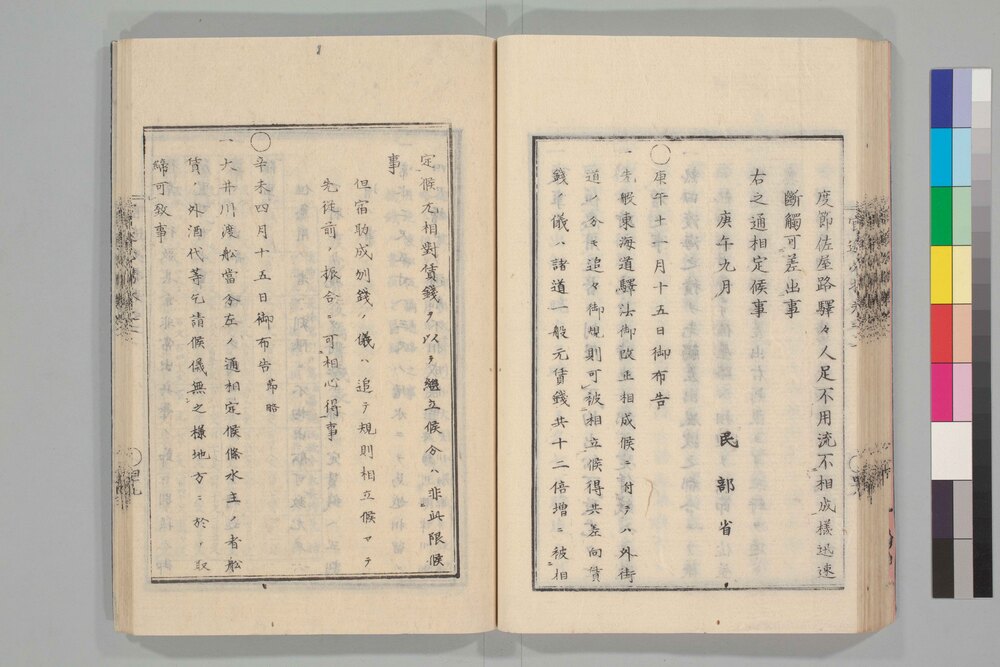 度節佐屋路驛々人足不用流不相成樣迅速
斷觸可差出事
右之通相定候事
庚午九月
民部省
〇
庚午十一月十五日御布告
一先般東海道驛法御改正相成候ニ付テハ外街
道ノ分モ追々御規則可被相立候得共差向賃
錢ノ儀ハ諸道一般元賃錢共十二倍増ニ被相
定候尤相對賃錢ヲ以テ繼立候分ハ非此限候
事
但宿助成刎錢ノ儀ハ追テ規則相立候マテ
先従前ノ振合ニ可相心得事
〇
辛未四月十五日御布告 節略
一大井川渡船當分左ノ通相定候條水主ノ者船
賃ノ外酒代等乞請候儀無之様地方ニ於テ取
締可致事